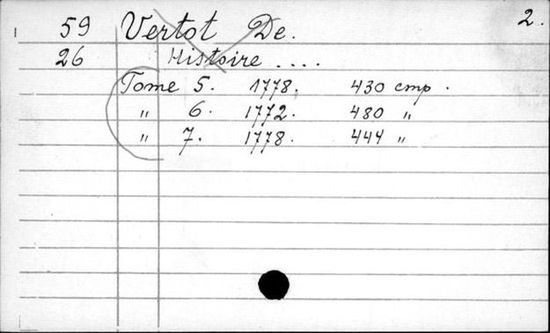 59 Vertot De. 2.
26 Histoire ....
Tome 5. 1778. 430 cmp.
" 6. 1772. 480 "
" 7. 1778. 444 "